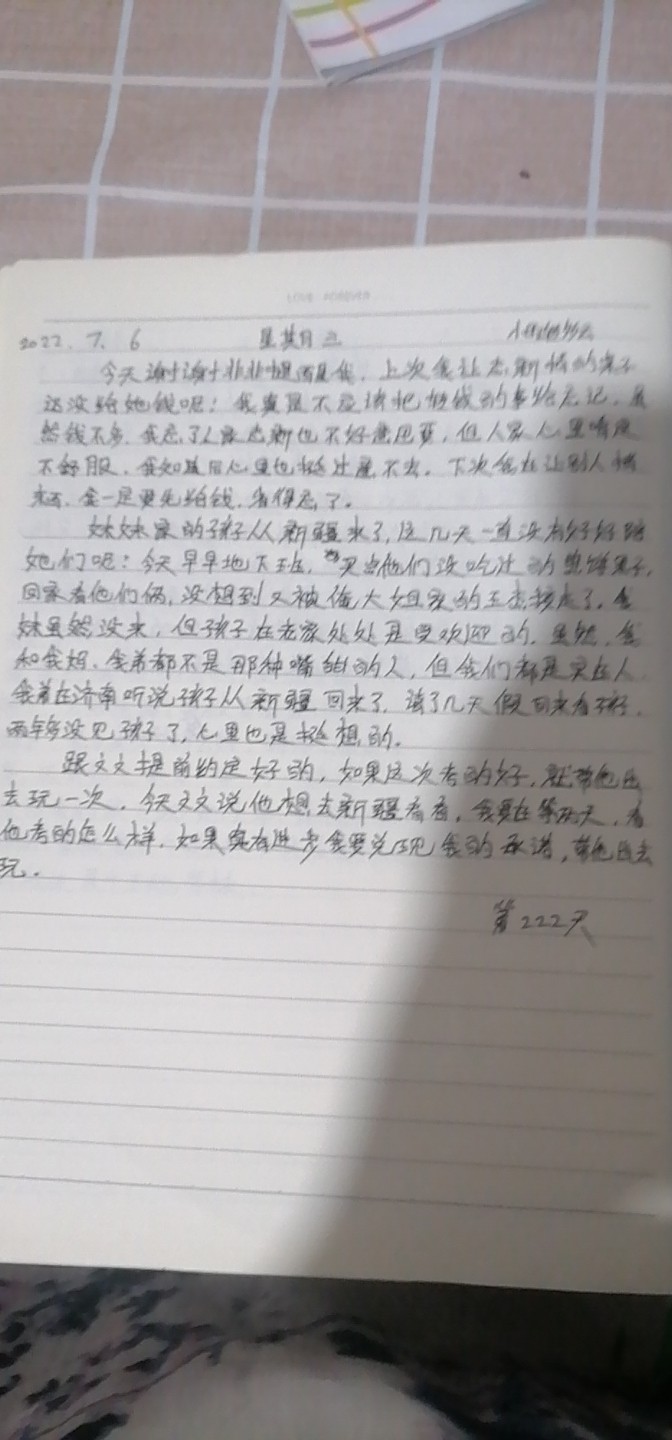 LOVE FOREVER
2022. 7. 6 星期三
今天谢谢非非提醒我,上次我让志新捎的案子
还没给她钱呢!我真是不应该把捎钱的事给忘记,虽
然钱不多,我忘了人家志新也不好意思要,但人家心里得
不舒服,我知道后心里也挺过意不去。下次我在让别人捎
东西,我一定要先给钱,省得忘了。
妹妹家的孩子从新疆来了,这几天一直没有好好陪
她们呢!今天早早地下班,买点他们没吃过的果子,
回家看他们俩,没想到又被俺大姐家的王志接走了,我
妹虽然没来,但孩子在老家处处是受欢迎的。虽然,我
和我妈、我弟都不是那种嘴甜的人,但我们都是实在人
我弟在济南听说孩子从新疆回来了,请了几天假回来看孩子,
两年多没见孩子了,心里也是挺想的。
跟文文提前约定好的,如果这次考的好,就带他出
去玩一次,今天文文说他想去新疆看看,我要在等两天,看
他考的怎么样,如果真有进步我要兑现我的承诺,带他出去
玩。
第222天